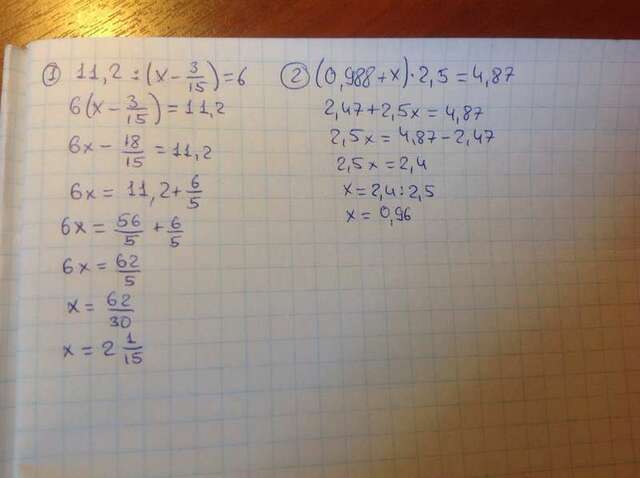 ① 11,2 : (x - 3/15) = 6
6(x - 3/15) = 11,2
6x - 18/15 = 11,2
6x = 11,2 + 6/5
6x = 56/5 + 6/5
6x = 62/5
x = 62/30
x = 2 1/15
② (0,988 + x) · 2,5 = 4,87
2,47 + 2,5x = 4,87
2,5x = 4,87 - 2,47
2,5x = 2,4
x = 2,4 : 2,5
x = 0,96